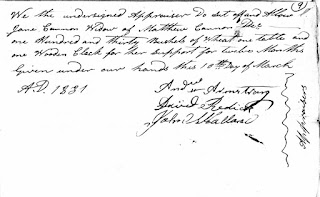 We the undersigned Appraiser Do Set off and Allow
Jane Cannon Widow of Matthew Cannon Dec
one Hundred and thirty Bushels of Wheat one table and
one Wooden Clock for her Support for twelve Months
Given under our hands this 10th Day of March
A.D. 1831
Andrew Armstrong
David Redick
John Wallace
Appraisers